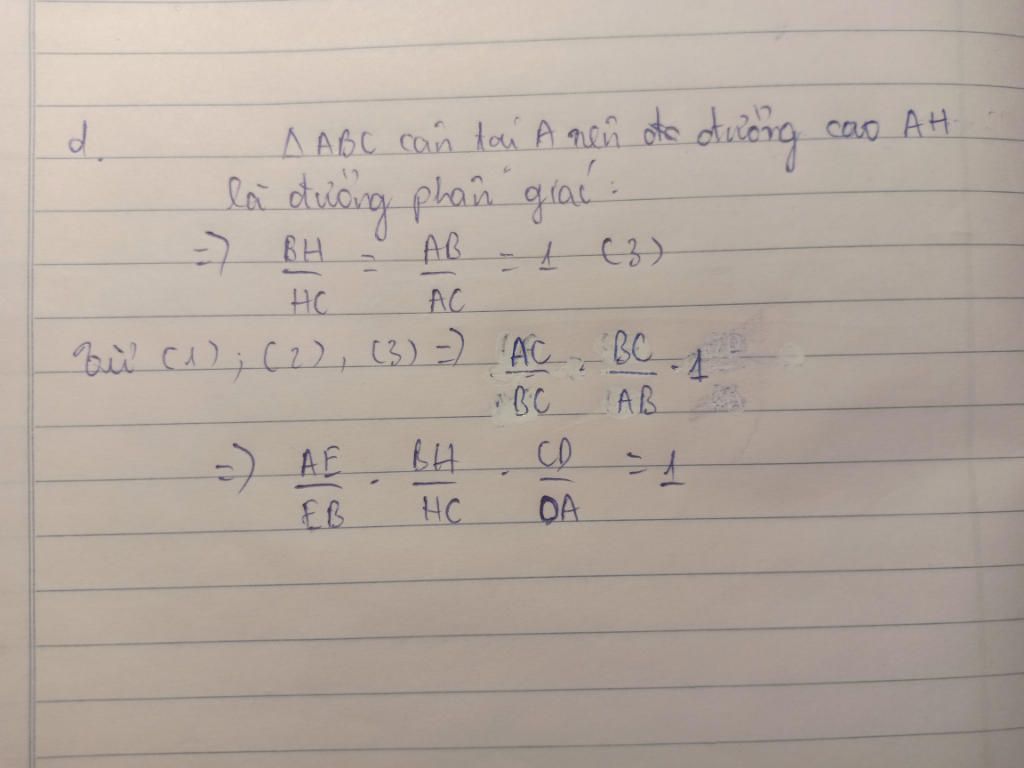 d. Δ ABC cân tại A nên đường cao AH
là đường phân giác :
=> BH/HC = AB/AC = 1 (3)
Từ (1) ; (2) , (3) => AC/BC . BC/AB . 1
=> AE/EB . BH/HC . CD/DA = 1